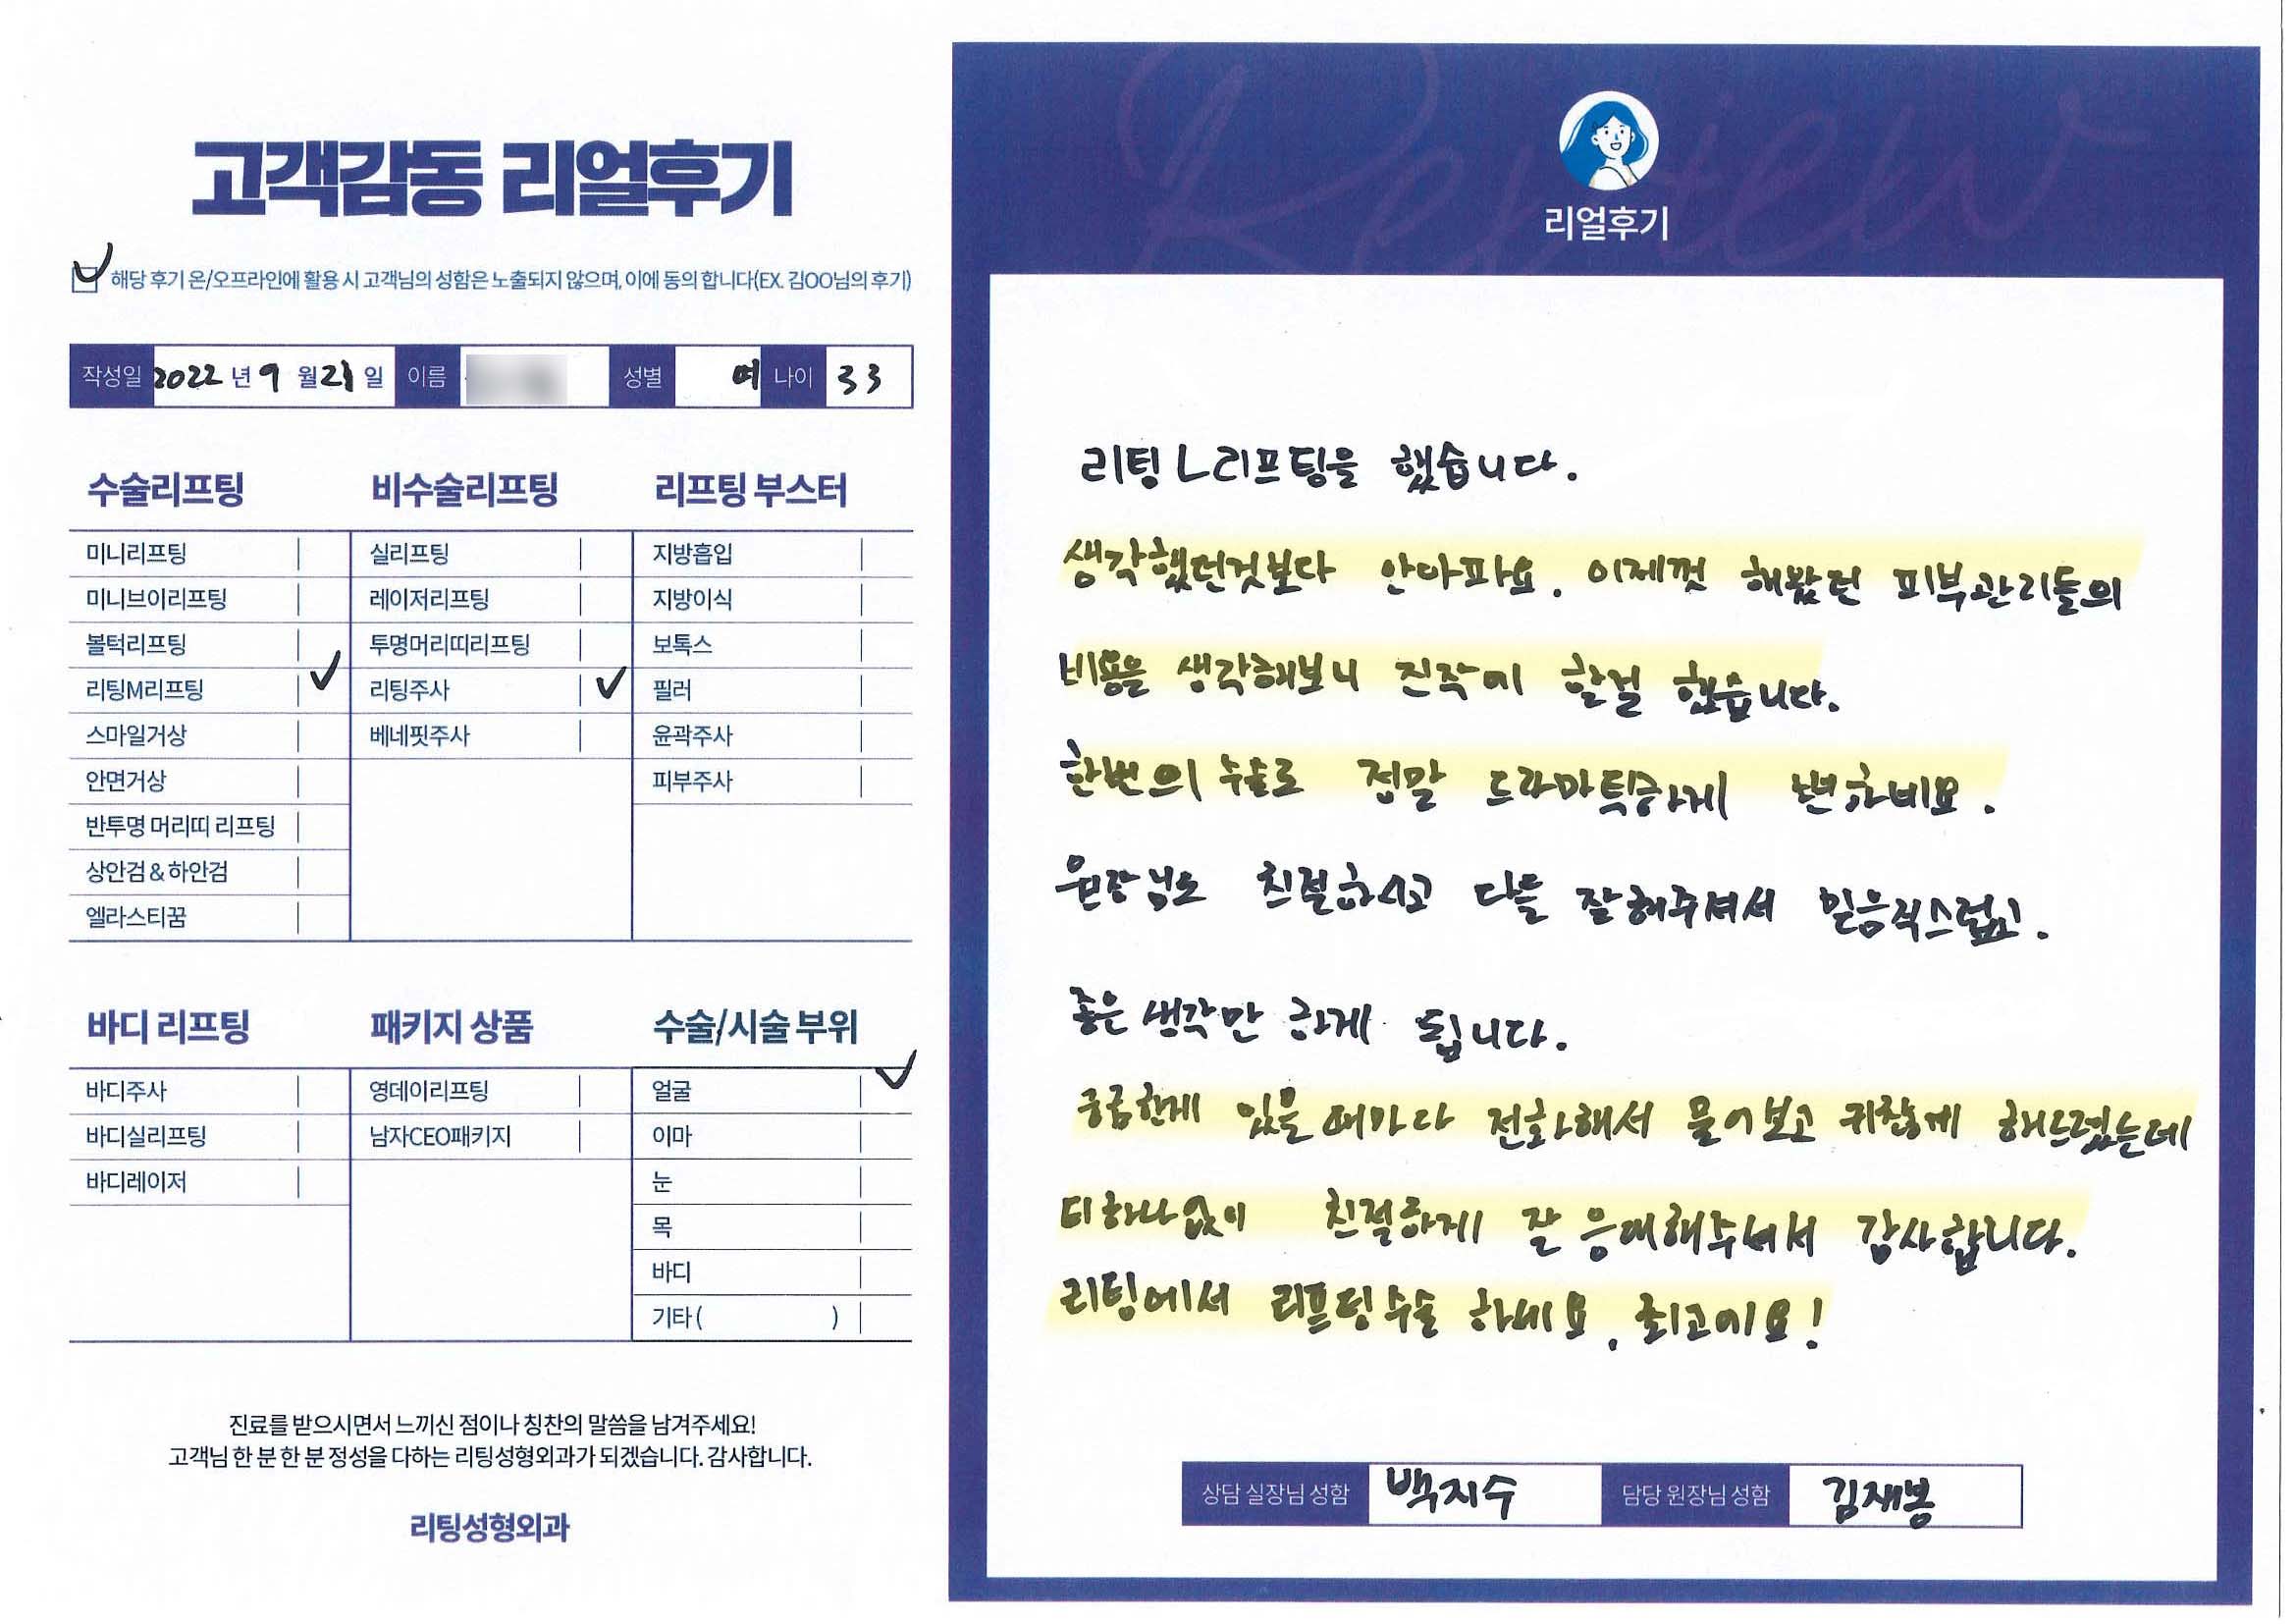 고객감동 리얼후기
해당 후기 온/오프라인에 활용 시 고객님의 성함은 노출되지 않으며, 이에 동의 합니다(EX. 김OO님의 후기)
작성일 2022 년 9 월 21 일 이름 성별 여 나이 33
수술리프팅 비수술리프팅 리프팅 부스터
미니리프팅 실리프팅 지방흡입
미니브이리프팅 레이저리프팅 지방이식
볼턱리프팅 투명머리띠리프팅 보톡스
리팅M리프팅 리팅주사 필러
스마일거상 베네핏주사 윤곽주사
안면거상 피부주사
반투명 머리띠 리프팅
상안검 & 하안검
엘라스티꿈
바디 리프팅 패키지 상품 수술/시술 부위
바디주사 영데이리프팅 얼굴
바디실리프팅 남자CEO패키지 이마
바디레이저 눈
목
바디
기타 ( )
진료를 받으시면서 느끼신 점이나 칭찬의 말씀을 남겨주세요!
고객님 한 분 한 분 정성을 다하는 리팅성형외과가 되겠습니다. 감사합니다.
리팅성형외과
Review
리얼후기
리팅 L리프팅을 했습니다.
생각했던것보다 안아파요. 이제껏 해왔던 피부관리들의
비용을 생각해보니 진작에 할걸 했습니다.
한번의 수술로 정말 드라마틱하게 변하네요.
원장님도 친절하시고 다들 잘해주셔서 믿음직스럽고.
좋은 생각만 하게 됩니다.
궁금한게 있을때마다 전화해서 물어보고 귀찮게 해드렸는데
티하나없이 친절하게 잘 응대해주셔서 감사합니다.
리팅에서 리프팅수술 하세요. 최고에요!
상담 실장님 성함 백지수 담당 원장님 성함 김재봉